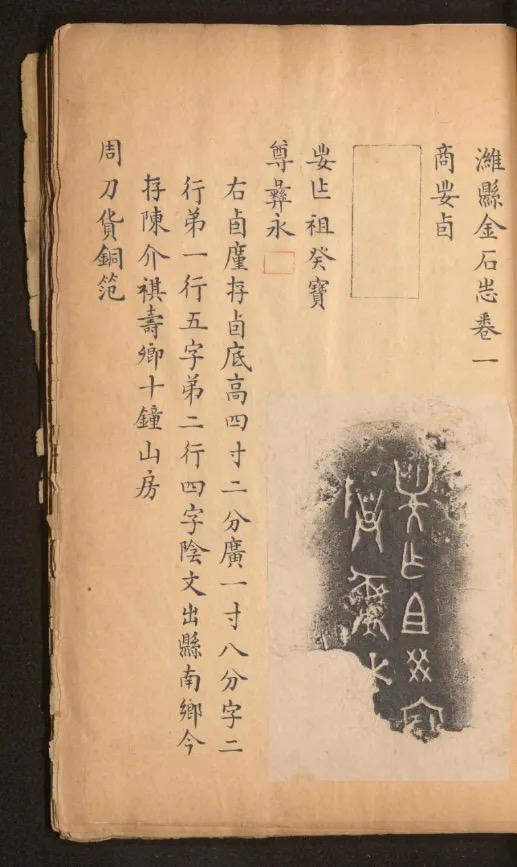 濰縣金石志卷一
商妛卣
妛乍祖癸寶
尊彝永
右卣廑存卣底高四寸二分廣一寸八分字二
行弟一行五字弟二行四字陰文出縣南鄉今
存陳介祺壽卿十鐘山房
周刀貨銅笵